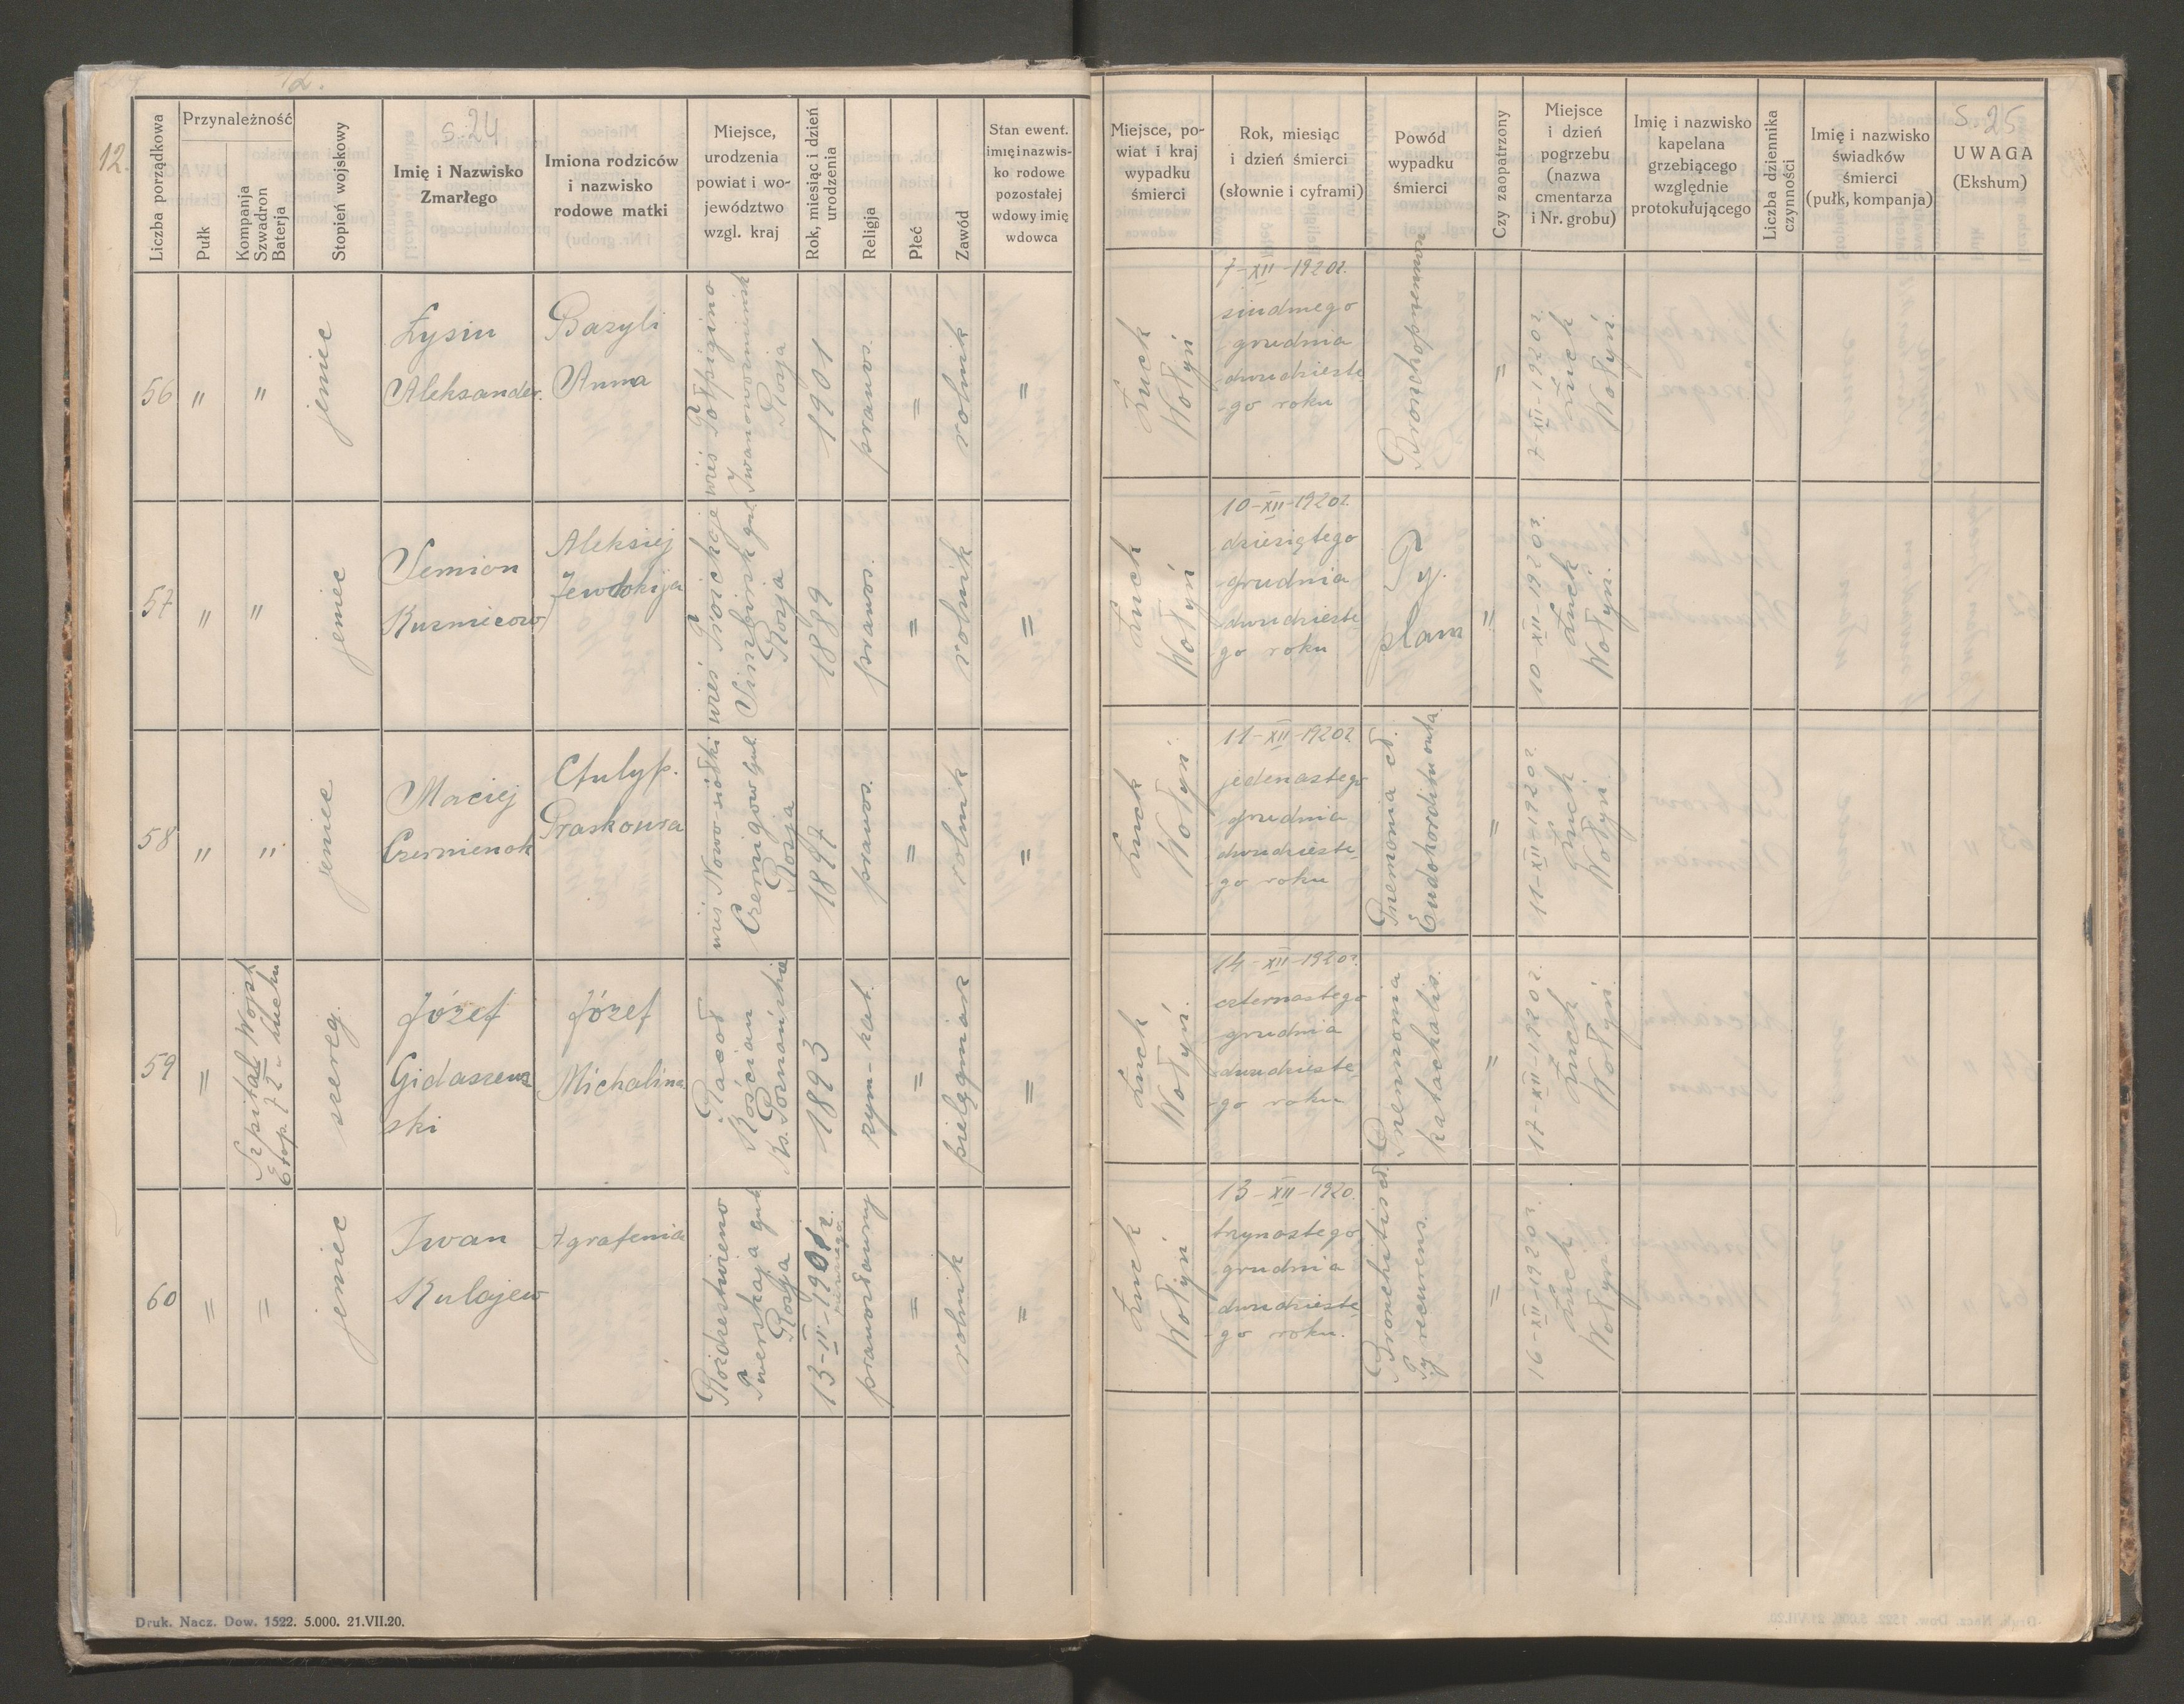 12.
12.
s. 24
Liczba porządkowa
Przynależność
Pułk
Kompanja
Szwadron
Baterja
Stopień wojskowy
Imię i Nazwisko
Zmarłego
Imiona rodziców
i nazwisko
rodowe matki
Miejsce,
urodzenia
powiat i wo-
jewództwo
wzgl. kraj
Rok, miesiąc i dzień
urodzenia
Religja
Płeć
Zawód
Stan ewent.
imię i nazwis-
ko rodowe
pozostałej
wdowy imię
wdowca
Miejsce, po-
wiat i kraj
wypadku
śmierci
Rok, miesiąc
i dzień śmierci
(słownie i cyframi)
Powód
wypadku
śmierci
Czy zaopatrzony
Miejsce
i dzień
pogrzebu
(nazwa
cmentarza
i Nr. grobu)
Imię i nazwisko
kapelana
grzebiącego
względnie
protokułującego
Liczba dziennika
czynności
Imię i nazwisko
świadków
śmierci
(pułk, kompanja)
s. 25
UWAGA
(Ekshum)
56
"
"
jeniec
Łysiu
Aleksander.
Bazyli
Anna
wieś
Iwanowo
Rosja
1901
prawos.
=
rolnik
=
Łuck
Wołyń
7-XII-1920r.
siudmego
grudnia
dwudzieste
-go roku
Bronchopnemon
=
7-XII-1920r.
Łuck
Wołyń.
57
"
"
jeniec
Semion
Kuzmicow
Aleksiej
Jewdokija
wieś Troickoje
Simbirsk gub.
Rosja
1889
prawos.
=
rolnik
=
Łuck
Wołyń
10-XII-1920r.
dziesiątego
grudnia
dwudzieste
go roku
Ty.
plam
"
10-XII-1920r.
Łuck
Wołyń.
58
"
"
jeniec
Maciej
Czernienok
Praskowia
wieś Nowo-siółki
Czernigow gub.
Rosja
1897
prawos.
=
rolnik
=
Łuck
Wołyń
11-XII-1920r
jedenastego
grudnia
dwudzieste-
-go roku
Pnemonia
=
11-XII-1920r.
Łuck
Wołyń.
59
"
Szpital Wojsk
Etap. 7 I - Łucku
szereg.
Józef
Gidaszew
ski
Józef
Michalina
Racot
Kościan
Ks. Poznańskie
1893
rzym-kat.
=
pielęgniarz
=
Łuck
Wołyń.
14-XII-1920r.
czternastego
grudnia
dwudzieste-
-go roku
Pnemonia
katachalis.
"
17-XII-1920r.
Łuck
Wołyń.
60
=
=
jeniec
Iwan
Kulajew
Agrafenia
Rozdestwieno
Twerskaja gub
Rosja
13-II-1901r.
pierwszego
prawosławny
=
rolnik
=
Łuck
Wołyń
13-XII-1920.
trzynastego
grudnia
dwudzieste
-go roku.
Bronchitis
Ty recurens.
=
16-XII-1920r.
Łuck
Wołyń.
Druk. Nacz. Dow. 1522. 5.000. 21.VII.20.